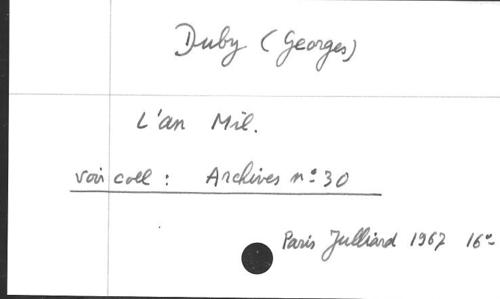 Duby (Georges)
L'an Mil.
voir coll : Archives n° 30
Paris Julliard 1967 16°